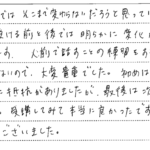 では そこまで変わらないだろうと思ってい
受ける前と後では明らかに変化し
す。人前で話すことの練習をす
ないので、大変貴重でした。初めは
に抵抗がありましたが、最後は
受講してみて本当に良かったです
ございました。